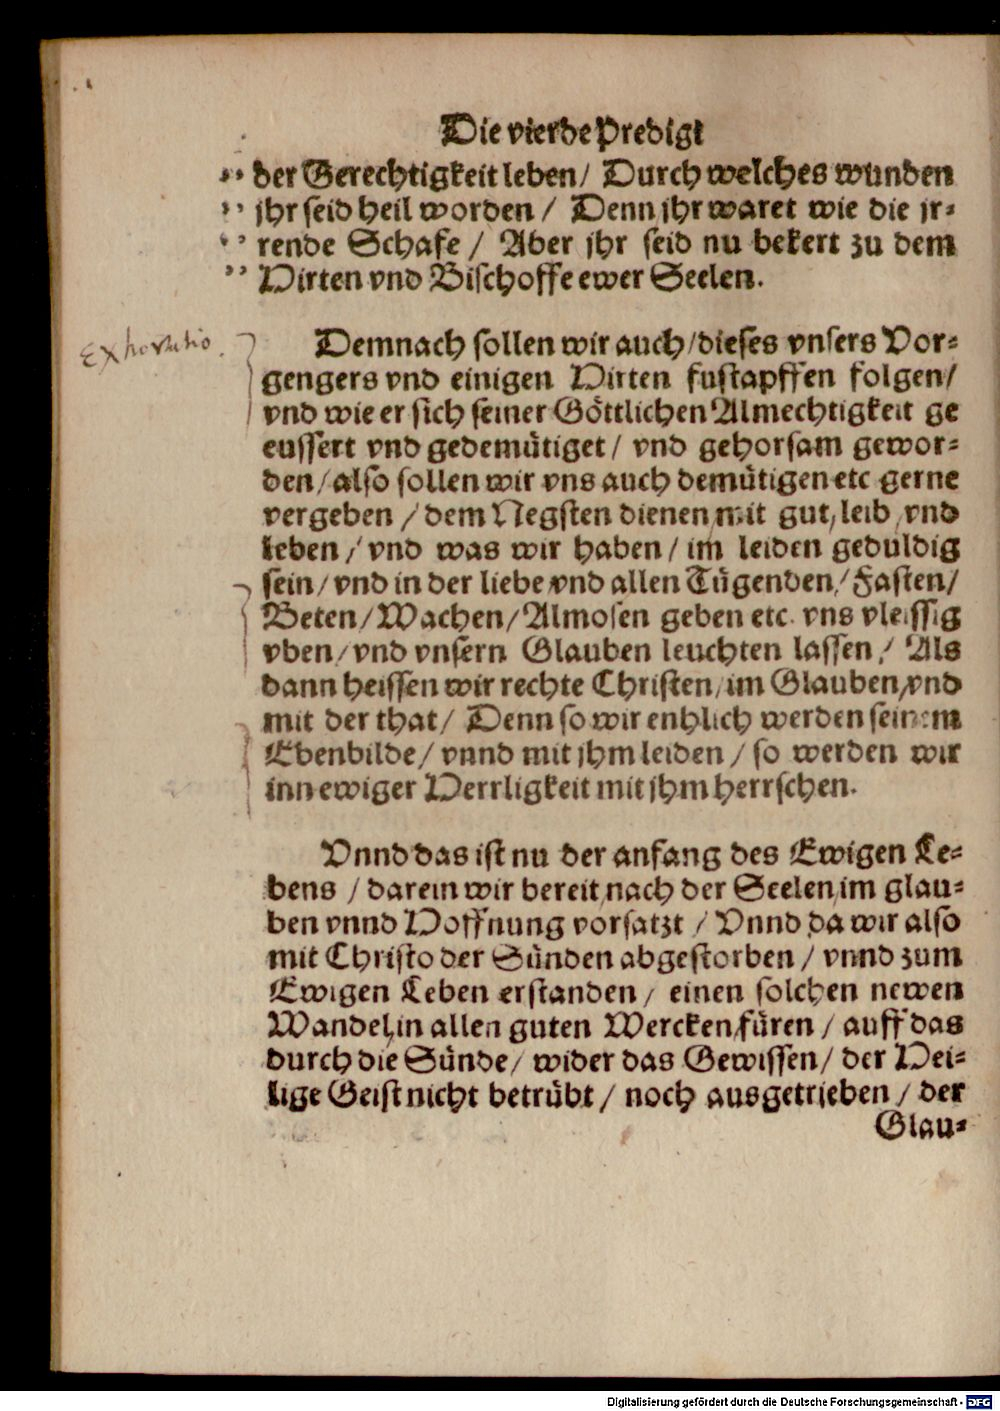 Die vierde Predigt
der Gerechtigkeit leben / Durch welches wunden
jhr seid heil worden / Denn jhr waret wie die jr-
rende Schafe / Aber jhr seid nu bekert zu dem
Hirten vnd Bischoffe ewer Seelen.
Exhortatio
Demnach sollen wir auch / dieses vnsers Vor-
gengers vnd einigen Hirten fustapffen folgen /
vnd wie er sich seiner Göttlichen Almechtigkeit ge
eussert vnd gedemütiget / vnd gehorsam gewor-
den / also sollen wir vns auch demütigen etc gerne
vergeben / dem Negsten dienen, mit gut, leib, vnd
leben / vnd was wir haben / im leiden geduldig
sein / vnd in der liebe vnd allen Tügenden / Fasten /
Beten / Wachen / Almosen geben etc. vns vleissig
vben / vnd vnsern Glauben leuchten lassen / Als
dann heissen wir rechte Christen, im Glauben, vnd
mit der that / Denn so wir enhlich werden seinem
Ebenbilde / vnnd mit jhm leiden / so werden wir
inn ewiger Herrligkeit mit jhm herrschen.
Vnnd das ist nu der anfang des Ewigen Le-
bens / darein wir bereit, nach der Seelen, im glau-
ben vnnd Hoffnung vorsatzt / Vnnd da wir also
mit Christo der Sünden abgestorben / vnnd zum
Ewigen Leben erstanden / einen solchen newen
Wandel, in allen guten Wercken, füren / auff das
durch die Sünde / wider das Gewissen / der Hei-
lige Geist nicht betrübt / noch ausgetrieben / der
Glau-
Digitalisierung gefördert durch die Deutsche Forschungsgemeinschaft - DFG